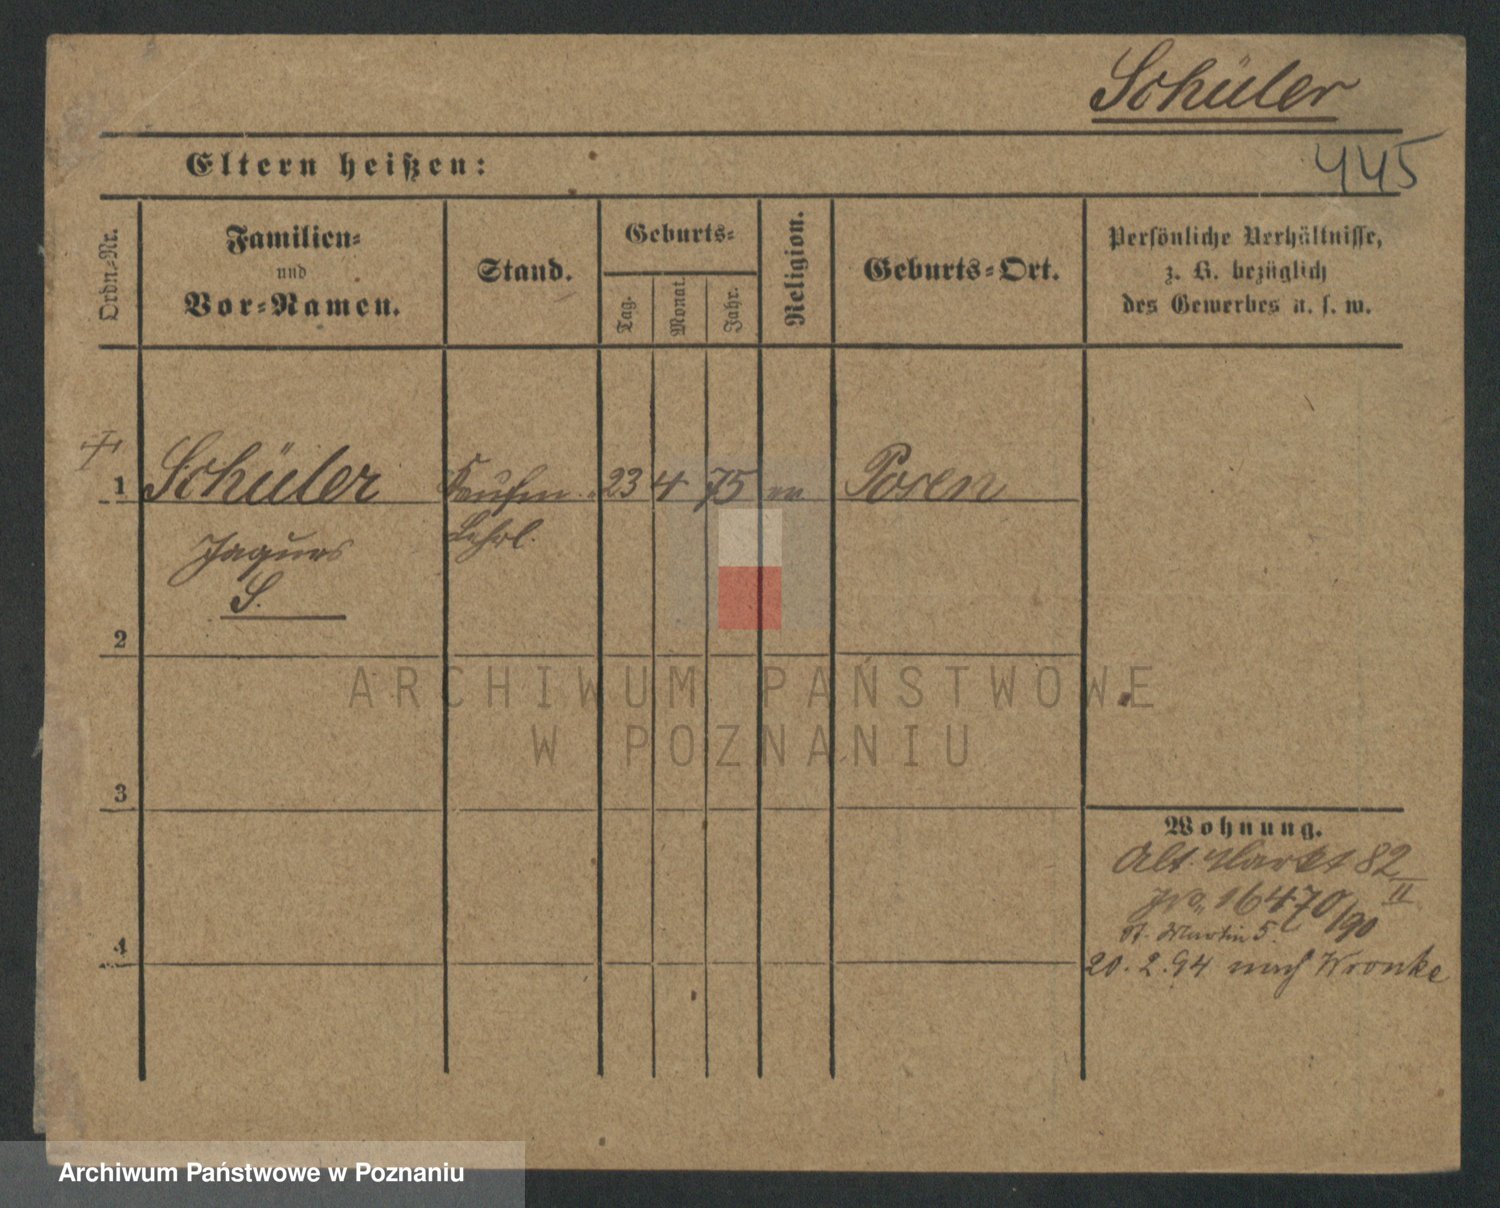 Schüler
Eltern heißen:
445
Ordn.-Nr.
Familien-
und
Vor-Namen.
Stand.
Geburts-
Tag.
Monat.
Jahr.
Religion.
Geburts-Ort.
Persönliche Verhältnisse,
z. B. bezüglich
des Gewerbes u. s. w.
1 Schüler Kaufm. 23 4 75 Posen
Lehrl.
S.
2
3
4
Wohnung.
Alt. Markt 82
II
16470/90
St. Martin 5.
20. 2. 94 nach Wronke
ARCHIWUM PAŃSTWOWE
W POZNANIU
Archiwum Państwowe w Poznaniu